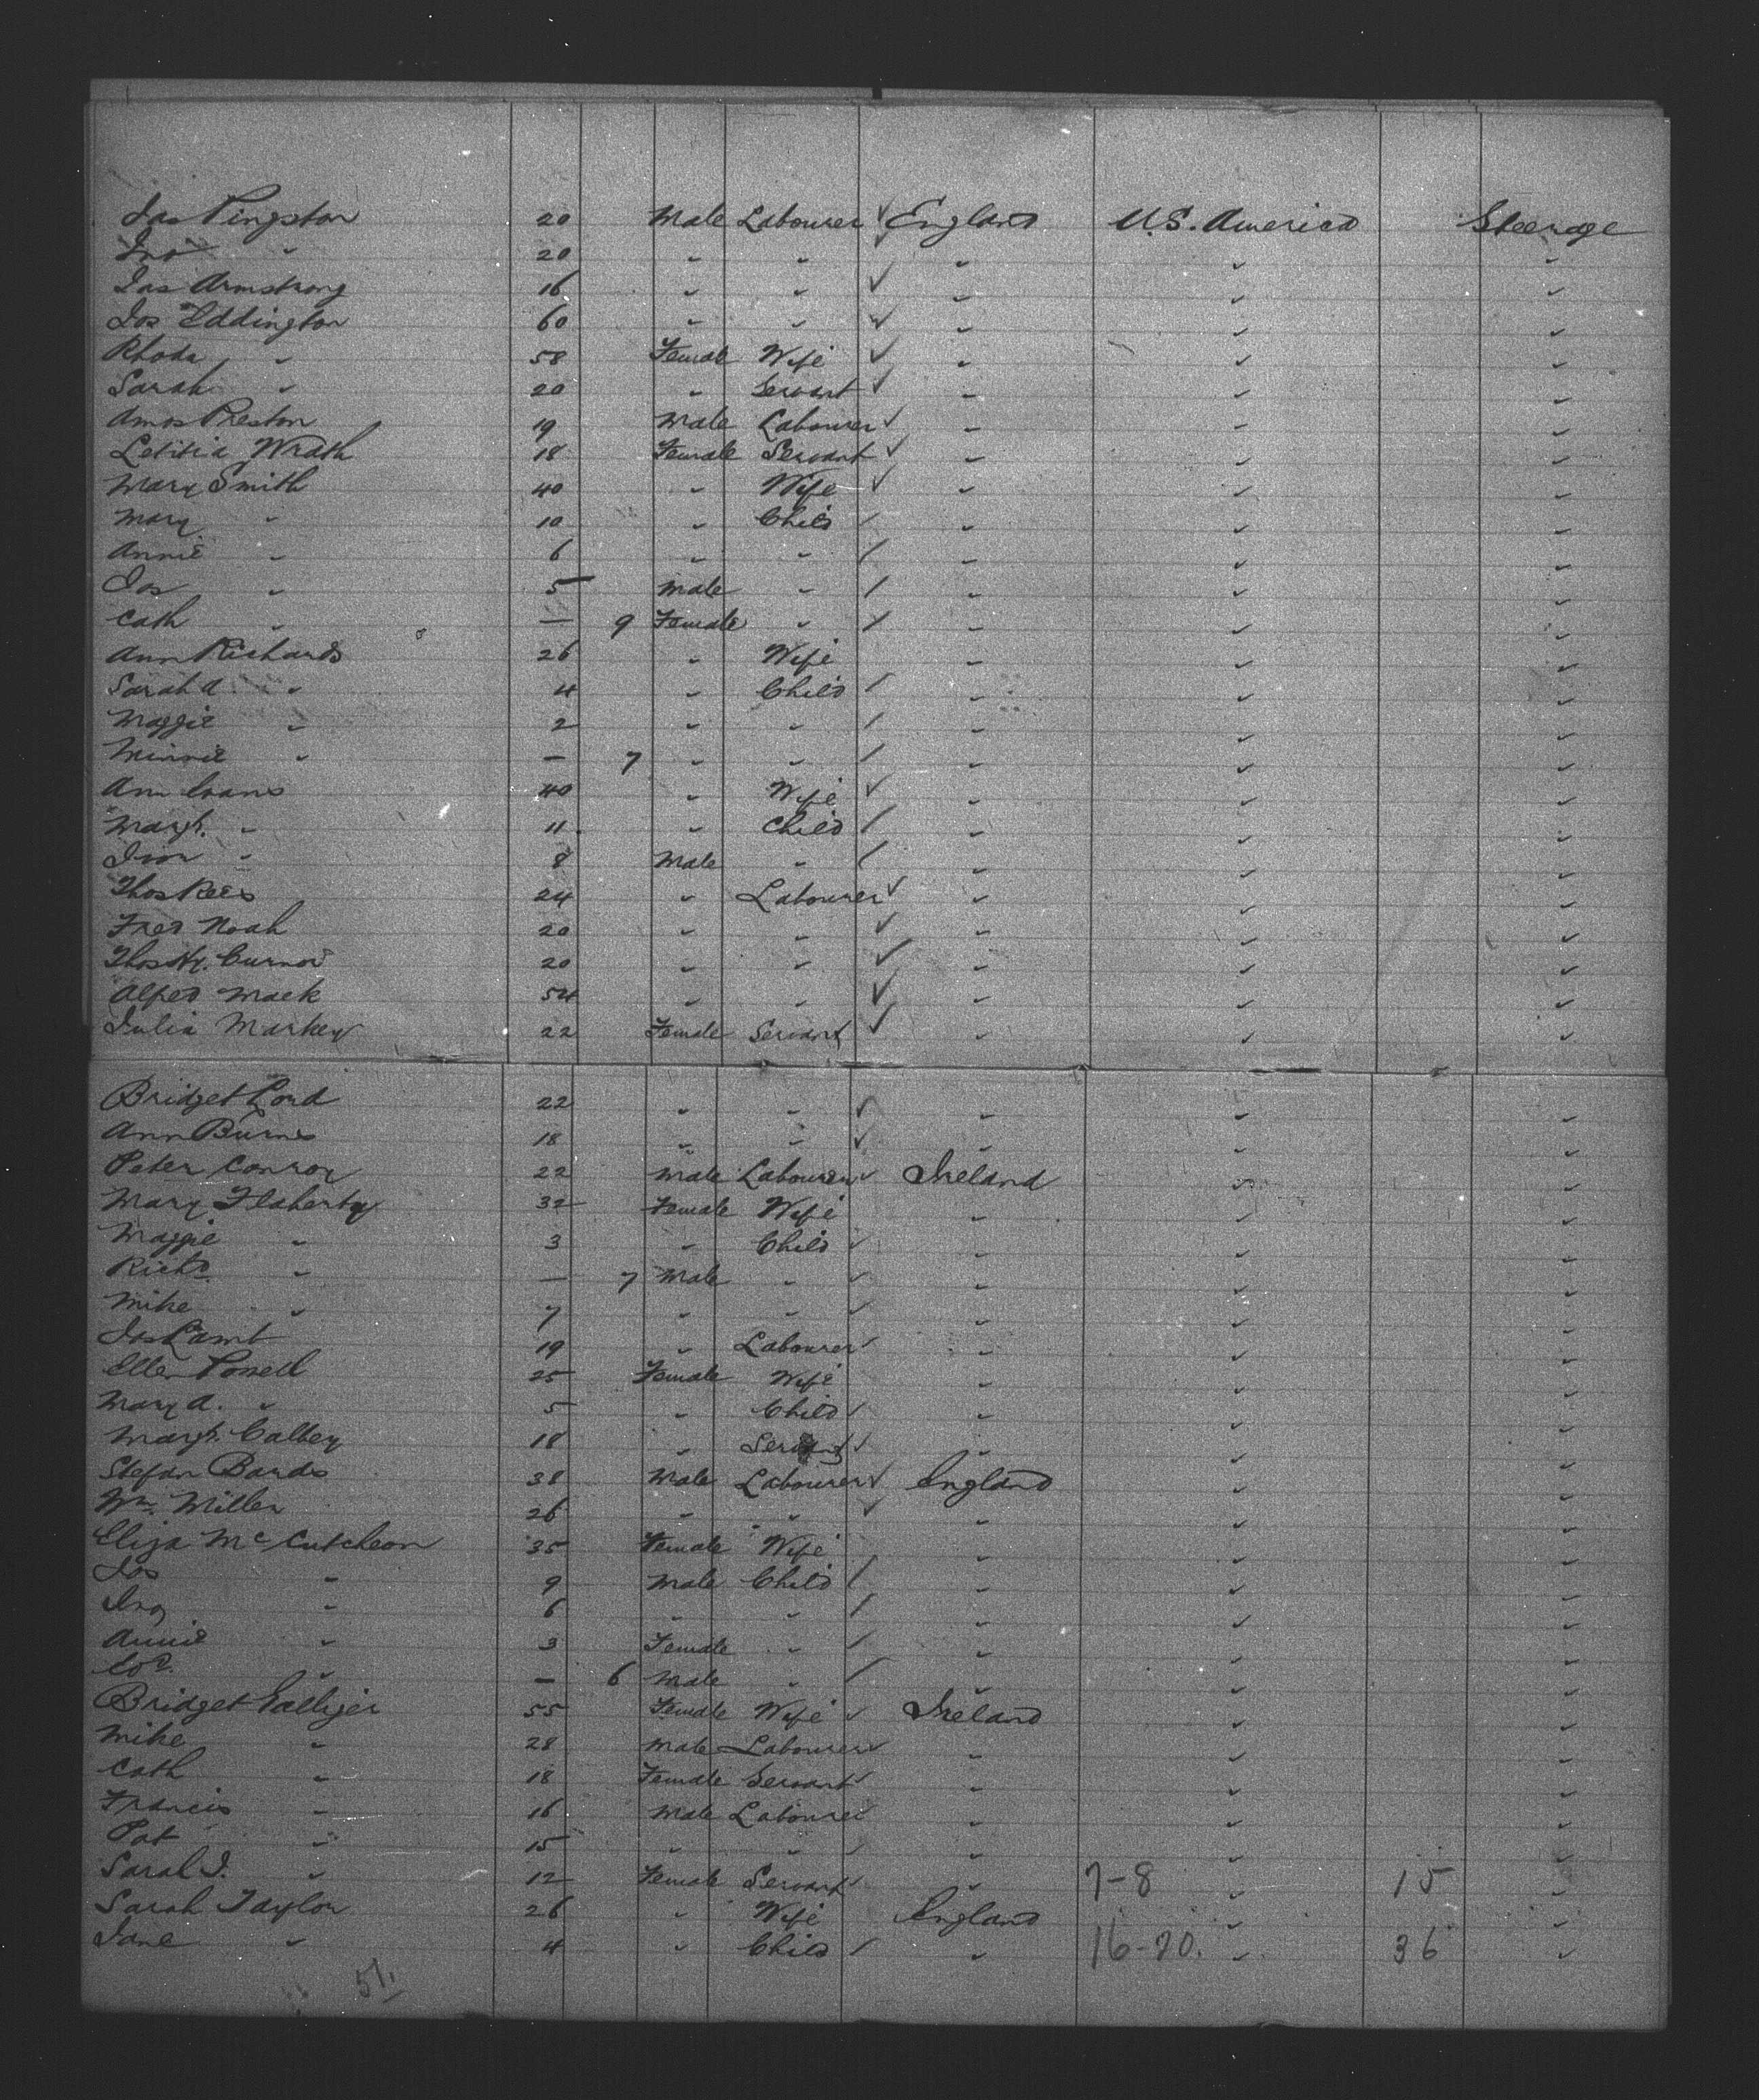 Jas Pingston 20 Male Labourer ✓ England U.S. America Steerage
Jno " 20 " " ✓ " " "
Jas Armstrong 16 " " ✓ " " "
Jos Eddington 60 " " ✓ " " "
Rhoda " 58 Female Wife ✓ " " "
Sarah " 20 " Servant ✓ " " "
Amos Preston 19 Male Labourer ✓ " " "
Letitia Wrath 18 Female Servant ✓ " " "
Mary Smith 40 " Wife ✓ " " "
Mary " 10 " Child / " " "
Annie " 6 " " / " " "
Jos " 5 Male " / " " "
Cath " — 9 Female " / " " "
Ann Richards 26 " Wife " " "
Sarah A " 4 " Child / " " "
Maggie " 2 " " / " " "
Minnie " — 7 " " / " " "
Ann Evans 40 " Wife ✓ " " "
Margt. " 11 " Child / " " "
Ivor " 8 Male " / " " "
Thos Rees 24 " Labourer ✓ " " "
Fred Noah 20 " " ✓ " " "
Thos Hy. Curnow 20 " " ✓ " " "
Alfred Mack 54 " " ✓ " " "
Julia Markey 22 Female Servant ✓ " " "
Bridget Cord 22 " " ✓ " " "
Ann Burns 18 " " ✓ " " "
Peter Conroy 22 Male Labourer ✓ Ireland " "
Mary Flaherty 32 Female Wife " " "
Maggie " 3 " Child ✓ " " "
Richd. " — 7 Male " ✓ " " "
Mike " 7 " " ✓ " " "
Jas Lamb 19 " Labourer ✓ " " "
Ellen Powell 25 Female Wife " " "
Mary A. " 5 " Child ✓ " " "
Margt. Calbey 18 " Servant ✓ " " "
Stefan Bards 38 Male Labourer ✓ England " "
Wm. Miller 26 " " ✓ " " "
Eliza McCutcheon 35 Female Wife " " "
Jos " 9 Male Child / " " "
Jno " 6 " " / " " "
Annie " 3 Female " / " " "
" — 6 Male " / " " "
Bridget Galliger 55 Female Wife ✓ Ireland " "
Mike " 28 Male Labourer ✓ " " "
Cath " 18 Female Servant ✓ " " "
Francis " 16 Male Labourer ✓ " " "
Pat " 15 " " / " " "
Sarah J. " 12 Female Servant ✓ " 7-8 " 15 "
Sarah Taylor 26 " Wife England " "
Jane " 4 " Child / " 16-20. " 36 "
51.